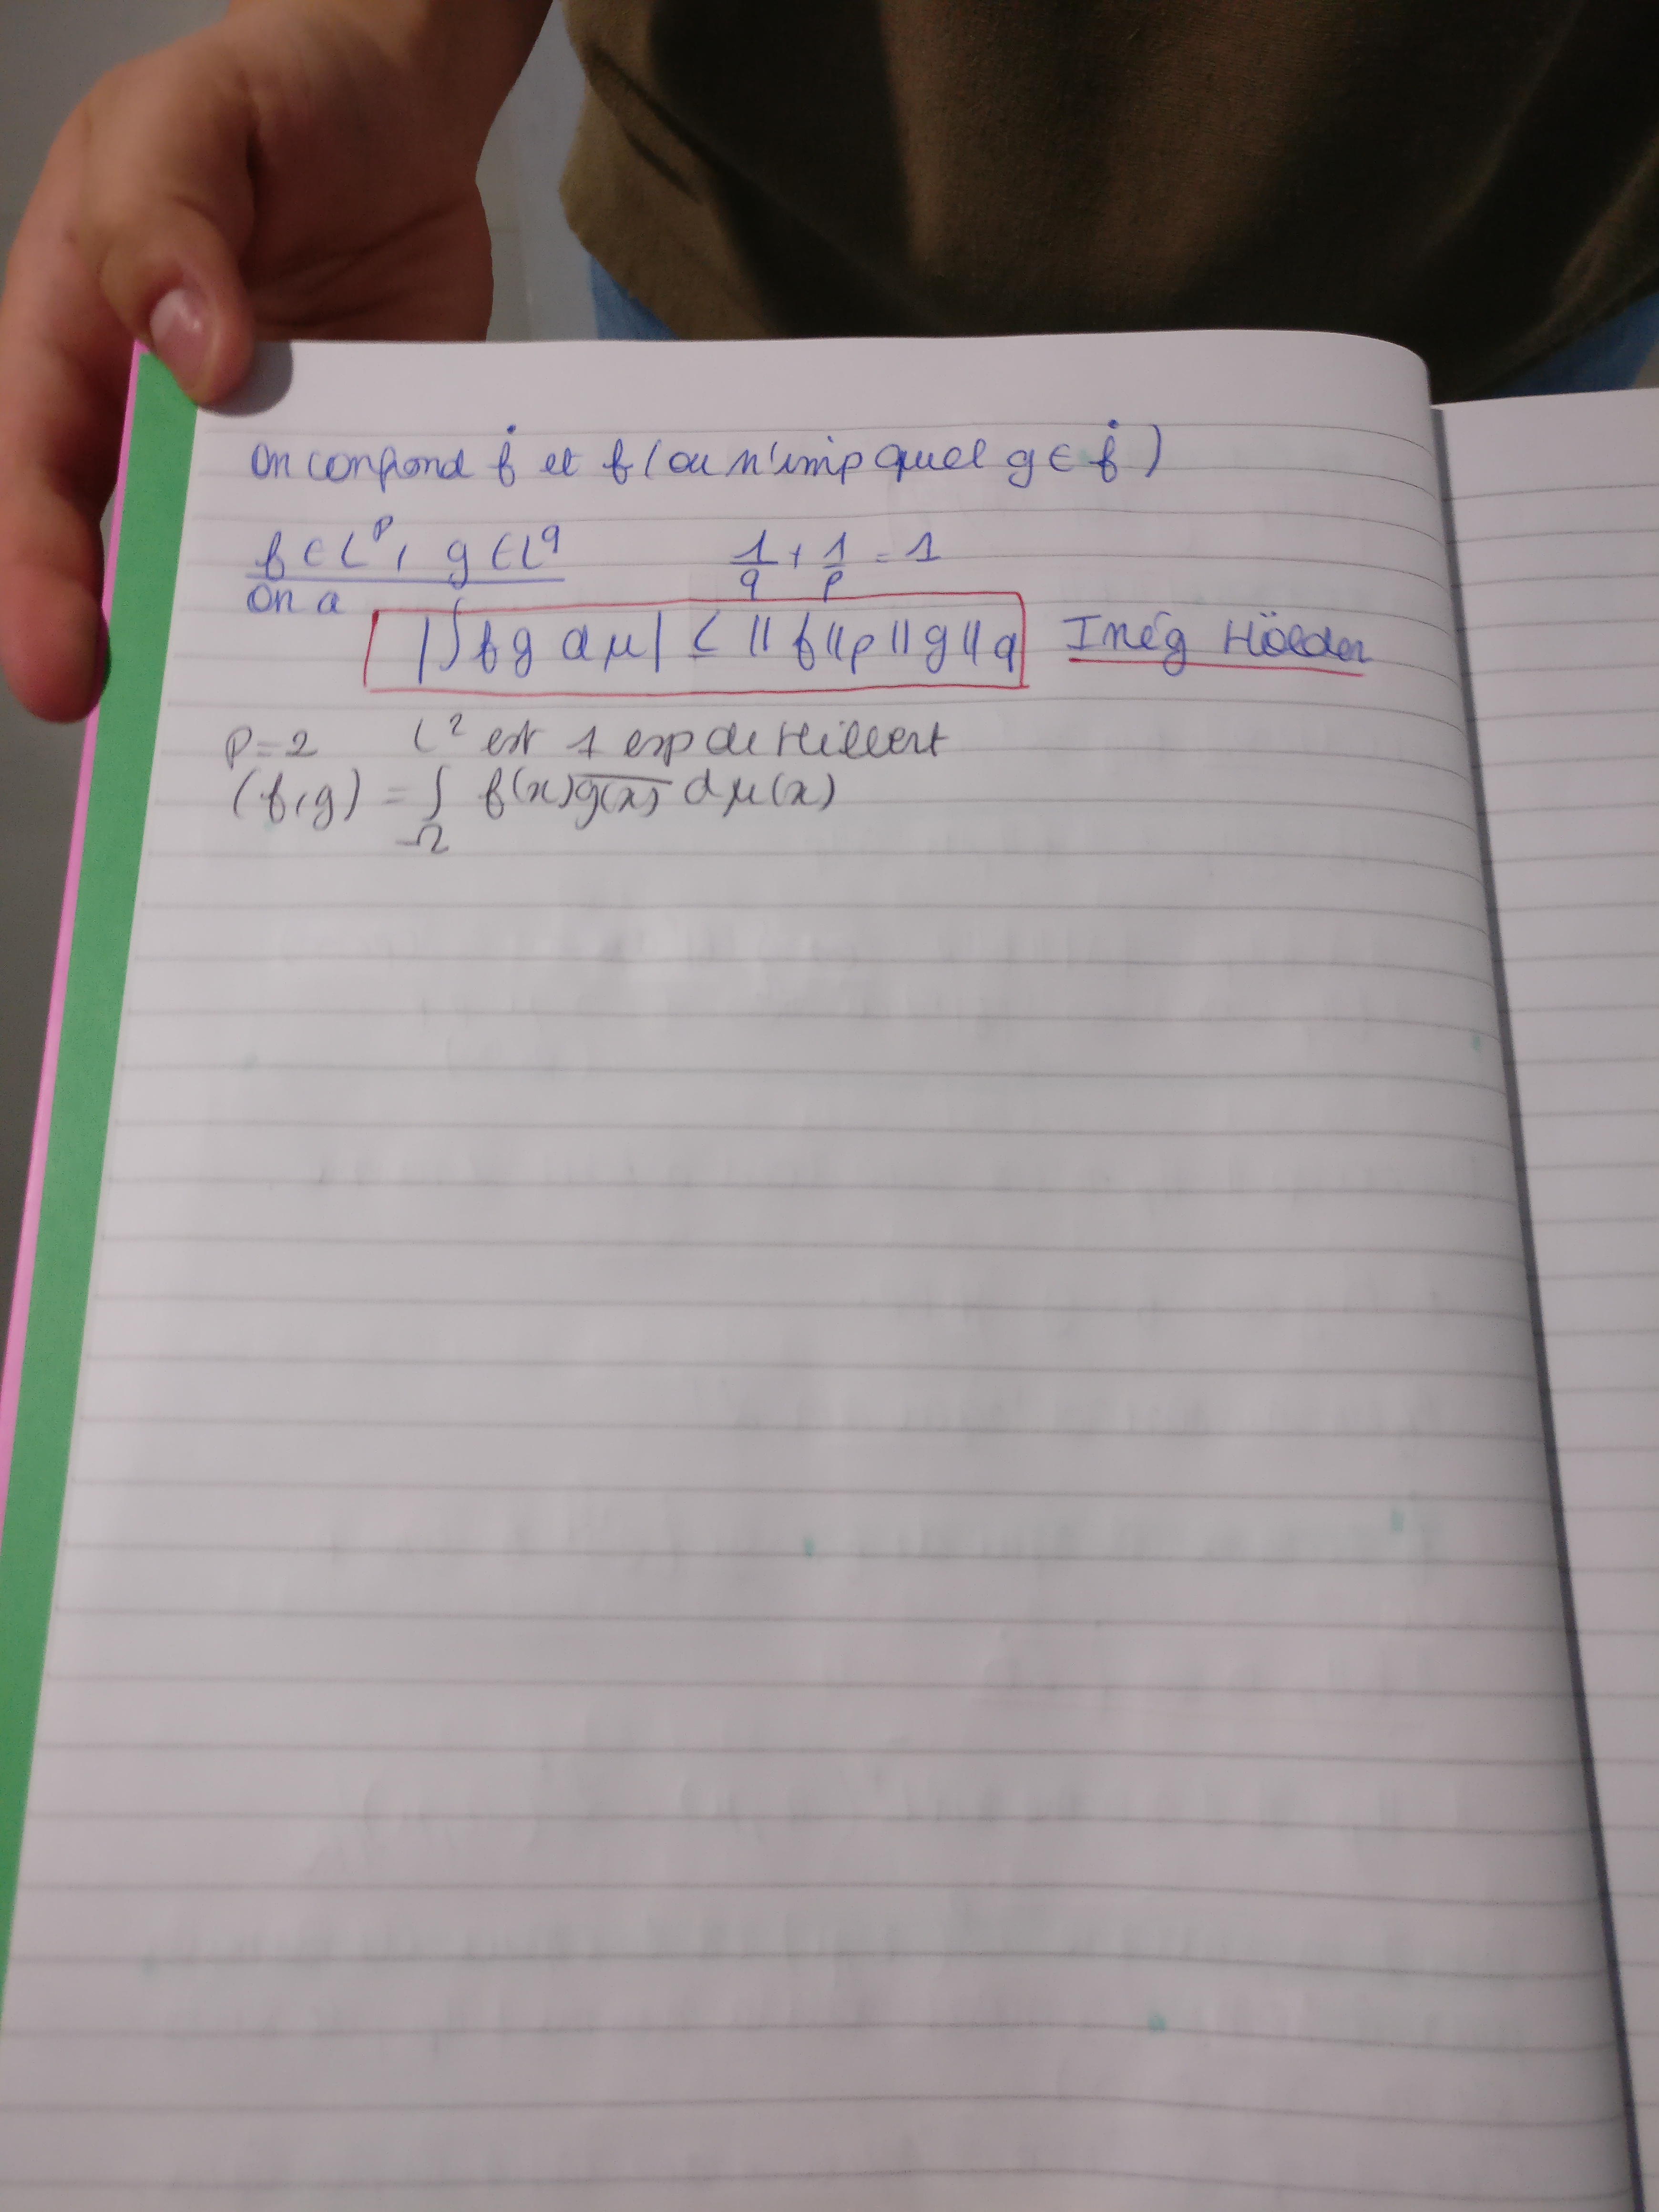 On confond ḟ et f (ou n'imp quel g ∈ ḟ)
f ∈ L^p, g ∈ L^q 1/q + 1/p = 1
On a
|∫fg dμ| ≤ ||f||p ||g||q Inég Hölder
P=2 L² est 1 esp de Hilbert
(f,g) = ∫_Ω f(x)g̅(̅x̅)̅ dμ(x)